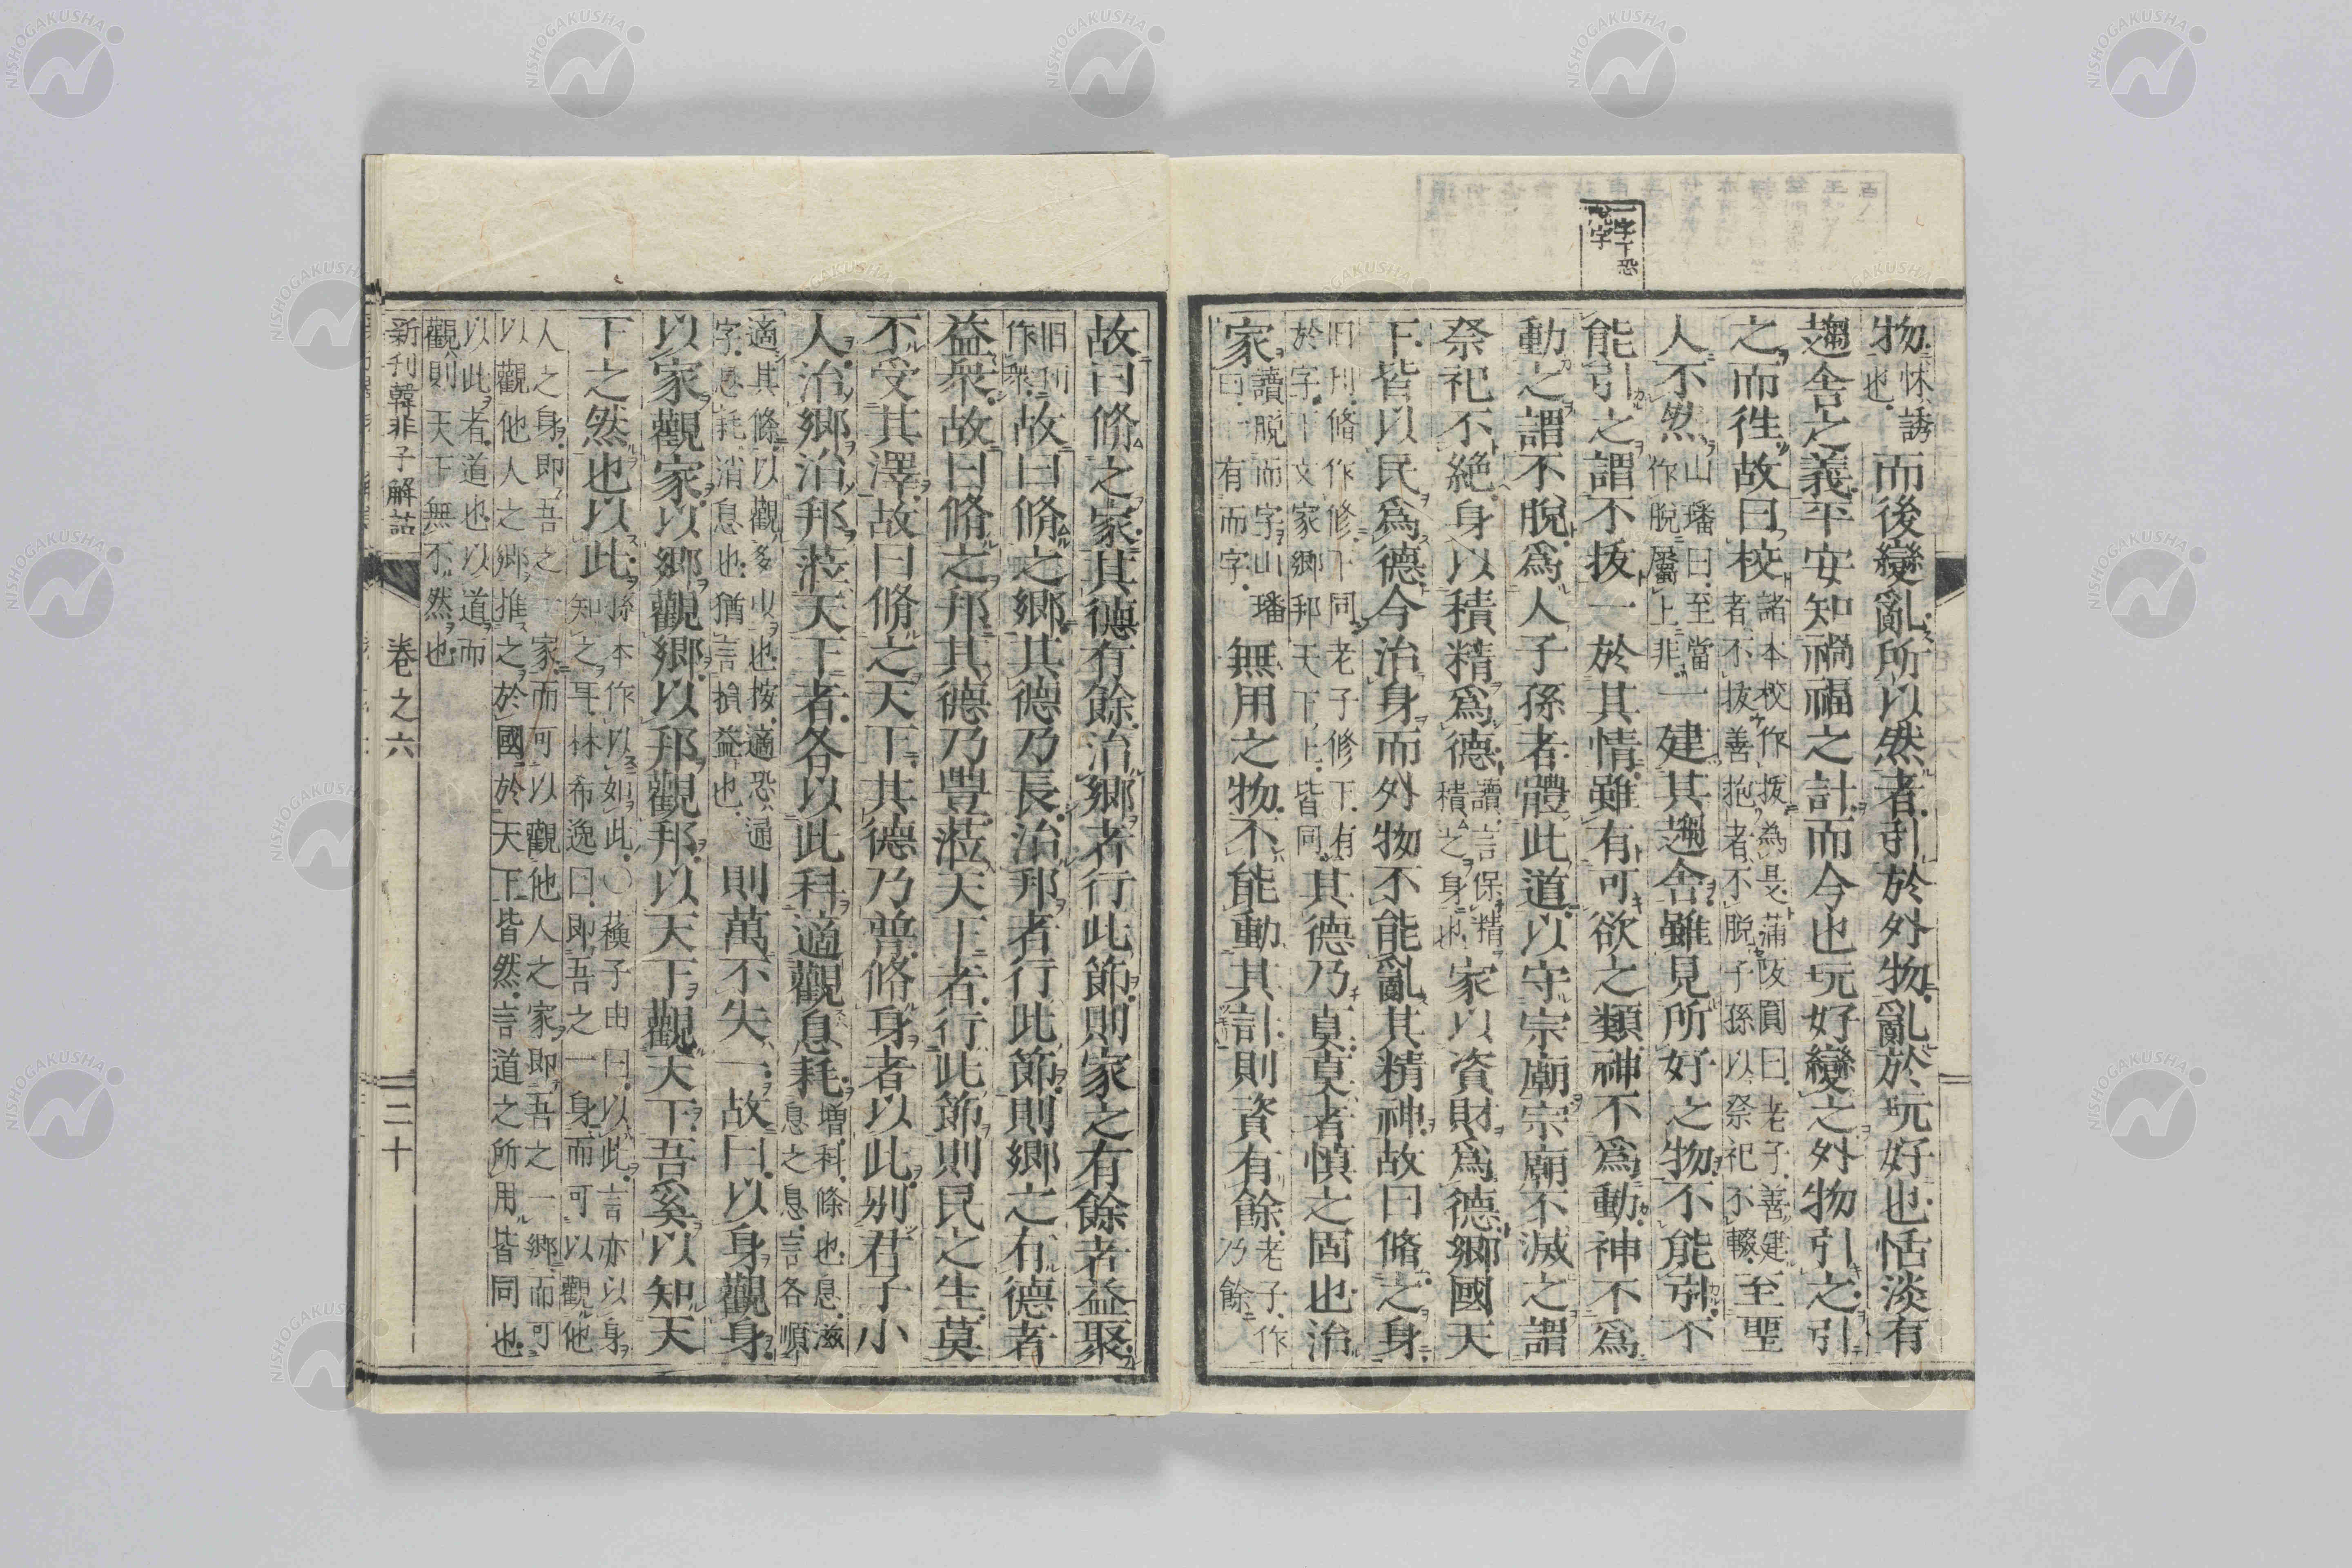 一字下恐
脱字
物怵誘也而後變亂所以然者引於外物亂於玩好也恬淡有
趨舍之義平安知禍福之計而今也玩好變之外物引之引
之而徃故曰校諸本校作拔為是蒲坂圓曰老子善建者不拔善抱者不脱子孫以祭祀不輟至聖
人不然山璠曰至當作脱屬上非一建其趨舍雖見所好之物不能引不
能引之謂不拔一於其情雖有可欲之類神不爲動神不爲
動之謂不脱爲人子孫者體此道以守宗廟宗廟不滅之謂
祭祀不絶身以積精爲德讀言保精積之身也家以資財爲德鄉國天
下皆以民爲德今治身而外物不能亂其精神故曰脩之身
旧刊脩作修下同老子修下有於字下文家鄉邦天下上皆同其德乃眞眞者慎之固也治
家讀脱而字山璠曰一有而字無用之物不能動其計則資有餘老子作乃餘
故曰脩之家其德有餘治鄉者行此節則家之有餘者益聚
旧刊作衆故曰脩之鄉其德乃長治邦者行此節則鄉之有德者
益衆故曰脩之邦其德乃豐莅天下者行此節則民之生莫
不受其澤故曰脩之天下其德乃普脩身者以此别君子小
人治鄉治邦莅天下者各以此科適觀息耗增科條也息滋息之息言各順
適其條以觀多少也按適恐通字息耗消息也猶言損益也則萬不失一故曰以身觀身
以家觀家以鄉觀鄉以邦觀邦以天下觀天下吾奚以知天
下之然也以此孫本作以如此〇蘓子由曰以此言亦以身知之耳林希逸曰即吾之一身而可以觀他
人之身即吾之一家而可以觀他人之家即吾之一鄉而可
以觀他人之鄉推之於國於天下皆然言道之所用皆同也
以此者道也以道而
觀則天下無不然也
新刊韓非子解詁 卷之六 二十